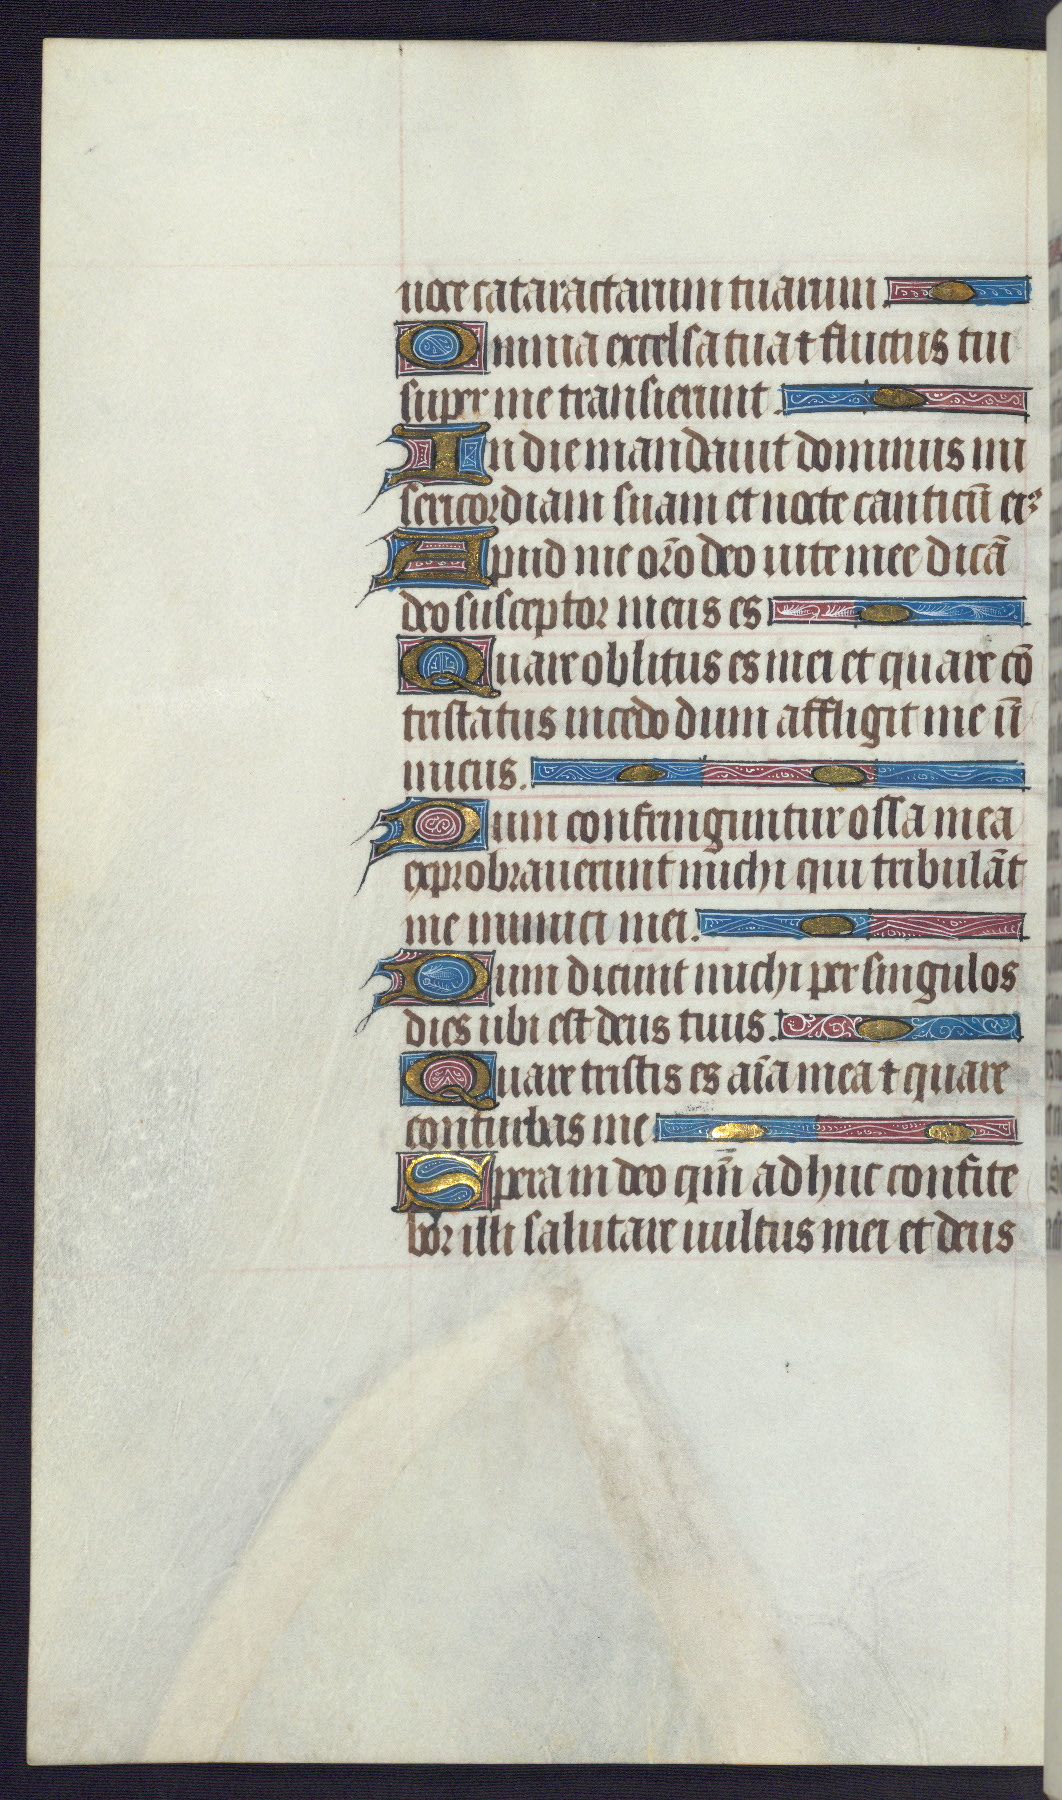 uoce cataractarum tuarum
Omnia excelsa tua ⁊ fluctus tui
super me transierunt.
In die mandauit dominus mi
sericordiam suam et nocte canticū eiꝰ
Apud me or̄o deo uite mee dicā
deo susceptor meus es
Quare oblitus es mei et quare cō
tristatus incedo dum affligit me ī
micus.
Dum confringuntur ossa mea
exprobrauerunt michi qui tribulāt
me inimici mei.
Dum dicunt michi per singulos
dies ubi est deus tuus.
Quare tristis es aīa mea ⁊ quare
conturbas me.
Spera in deo qm̄ adhuc confite
bor illi salutare uultus mei et deus